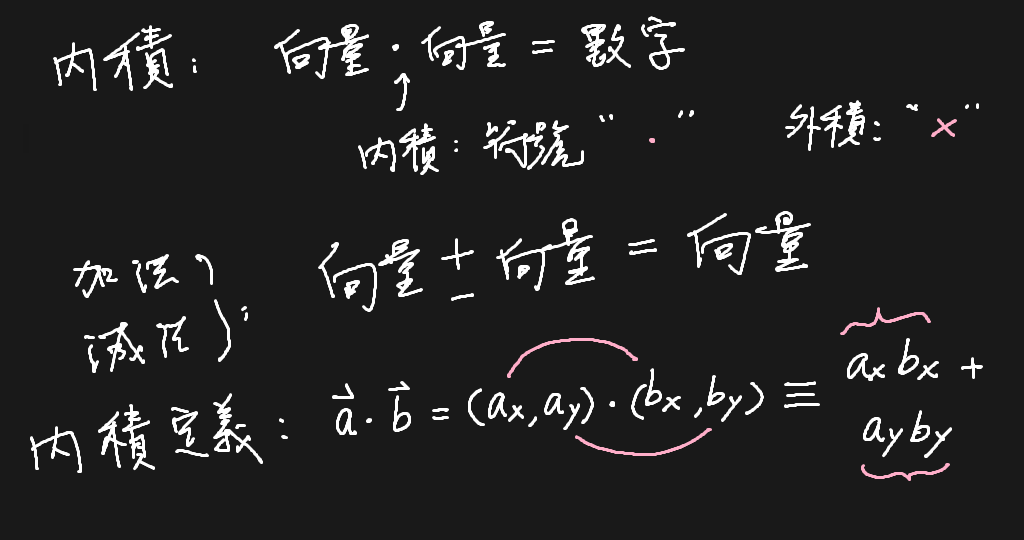 內積: 向量 · 向量 = 數字
內積: 符號 “ · ” 外積: “ × ”
加法 減法 ): 向量 ± 向量 = 向量
內積定義: a⃗ · b⃗ = (aₓ, a_y) · (bₓ, b_y) ≡ aₓbₓ +
a_y b_y